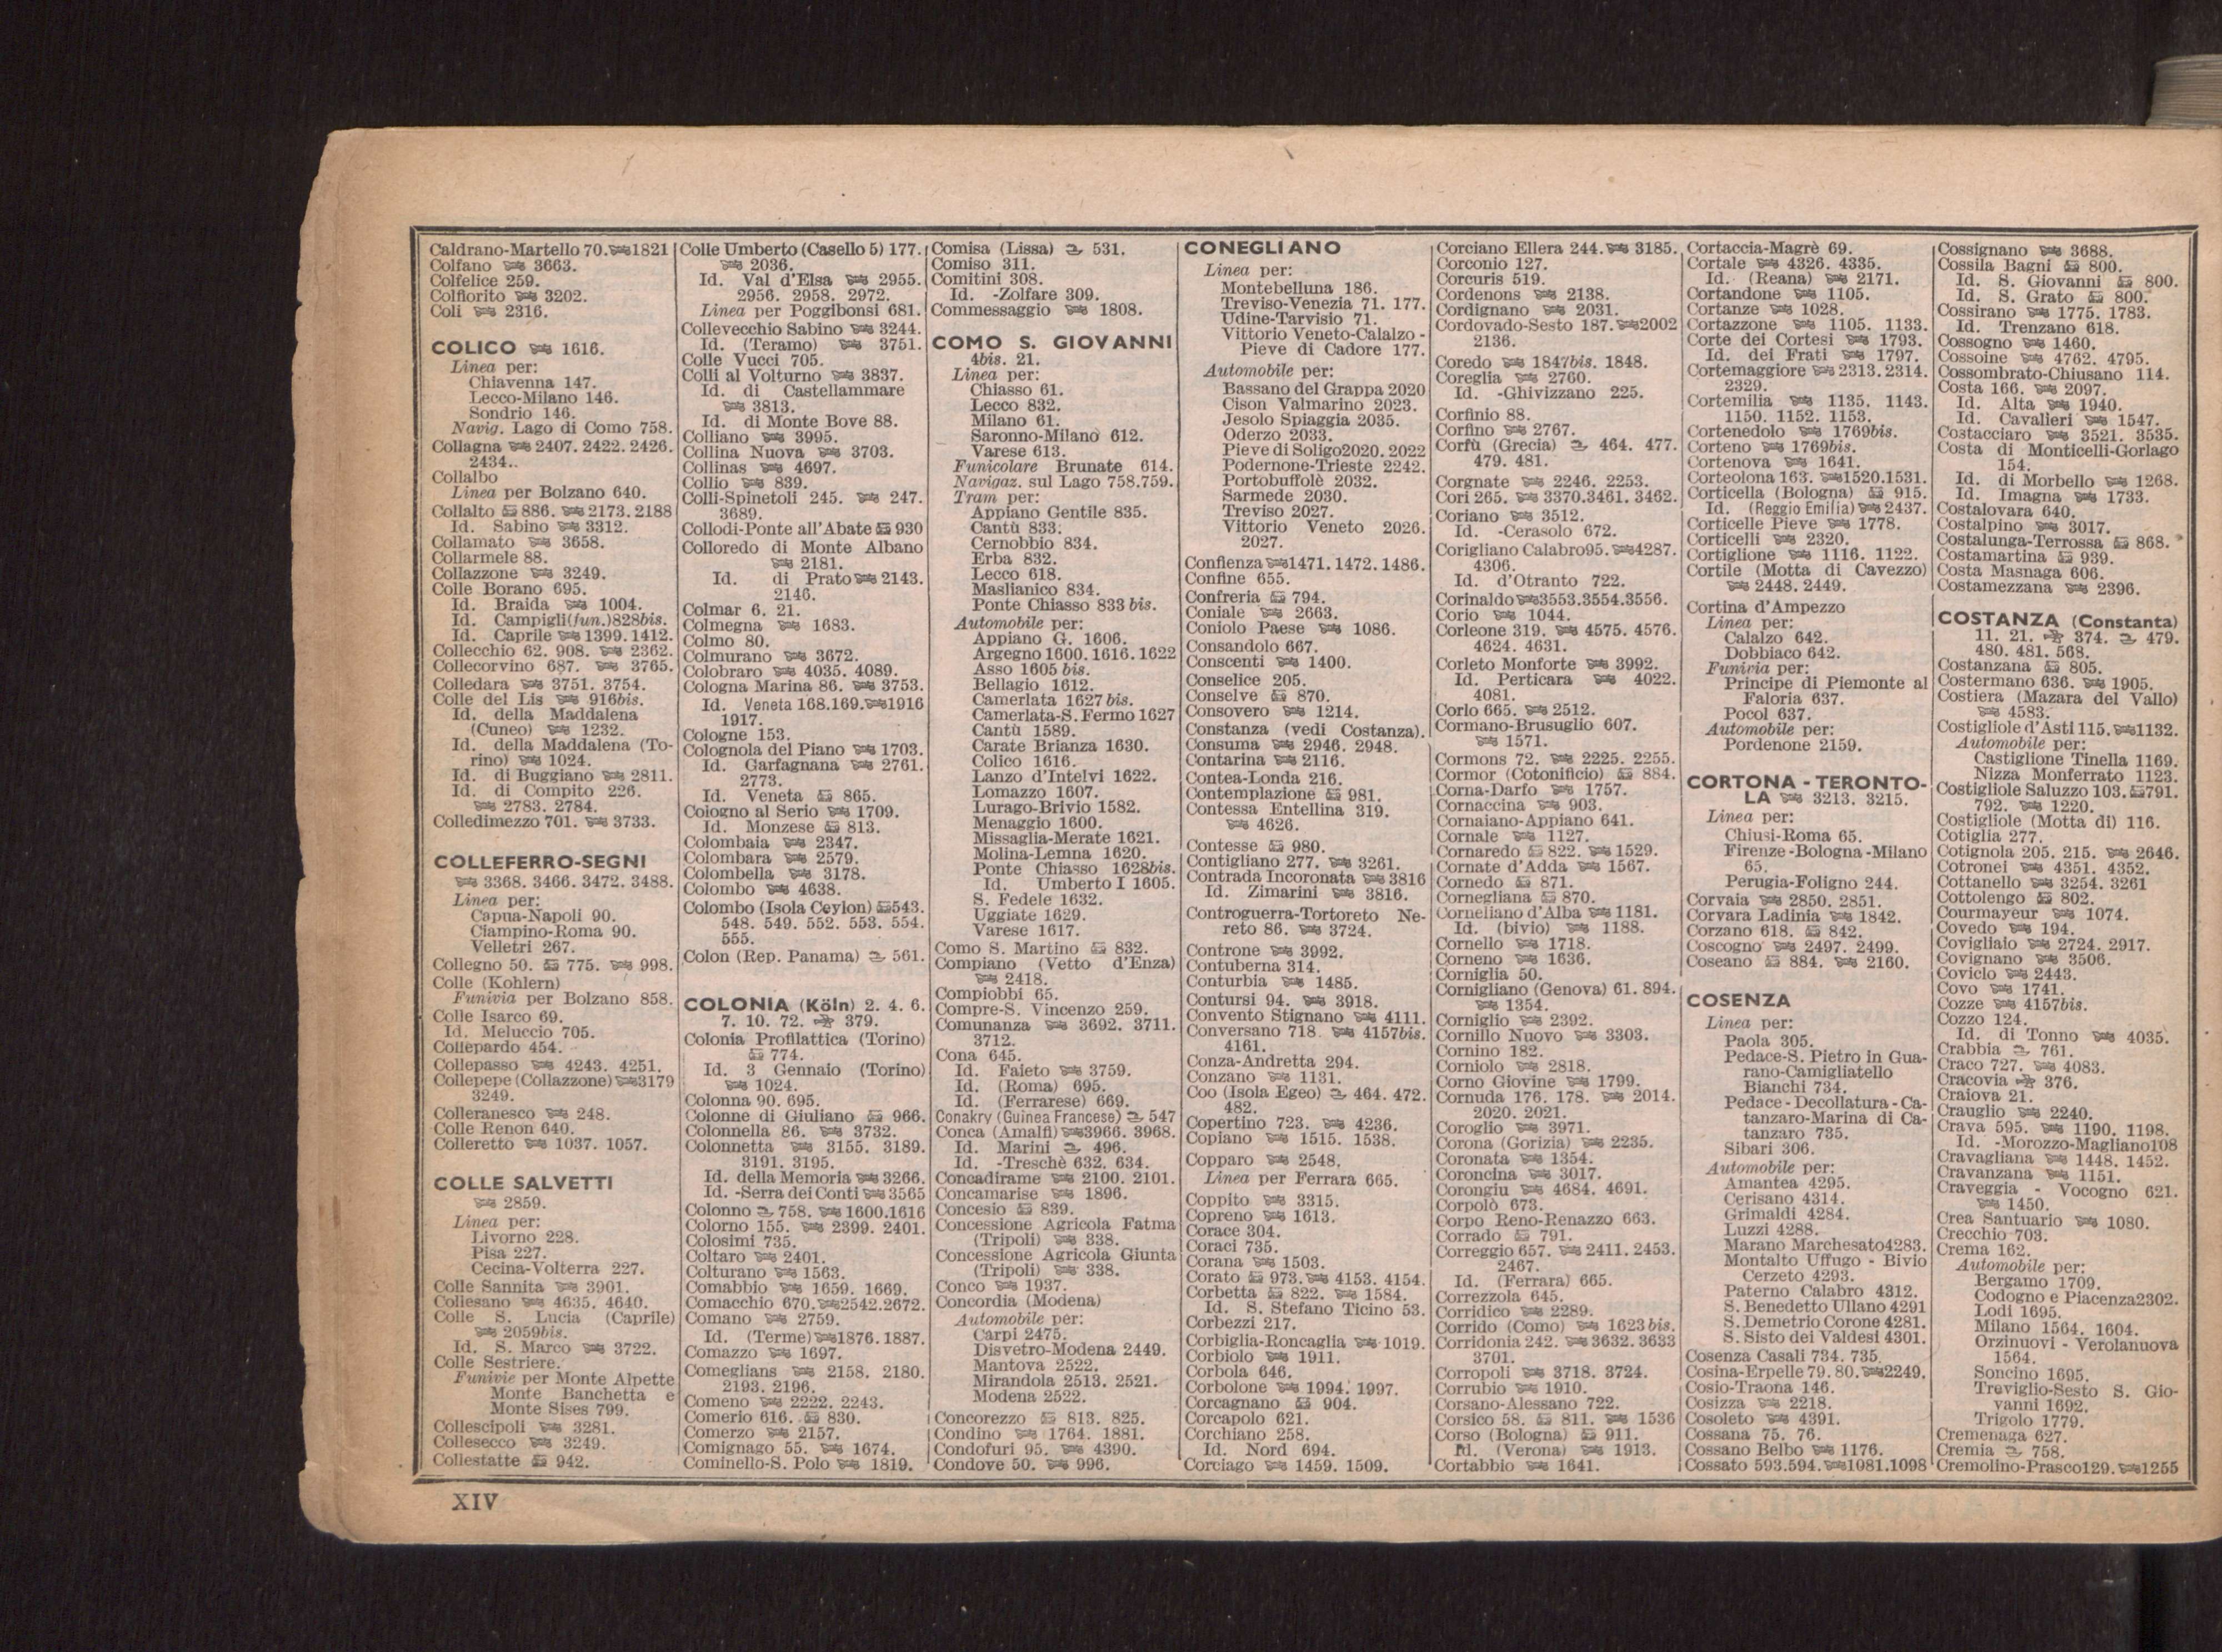 Caldrano-Martello 70. 1821
Colfano 3663.
Colfelice 259.
Colfiorito 3202.
Coli 2316.
COLICO 1616.
Linea per:
Chiavenna 147.
Lecco-Milano 146.
Sondrio 146.
Navig. Lago di Como 758.
Collagna 2407. 2422. 2426.
2434..
Collalbo
Linea per Bolzano 640.
Collalto 886. 2173. 2188
Id. Sabino 3312.
Collamato 3658.
Collarmele 88.
Collazzone 3249.
Colle Borano 695.
Id. Braida 1004.
Id. Campigli(fun.)828bis.
Id. Caprile 1399. 1412.
Collecchio 62. 908. 2362.
Collecorvino 687. 3765.
Colledara 3751. 3754.
Colle del Lis 916bis.
Id. della Maddalena
(Cuneo) 1232.
Id. della Maddalena (To-
rino) 1024.
Id. di Buggiano 2811.
Id. di Compito 226.
2783. 2784.
Colledimezzo 701. 3733.
COLLEFERRO-SEGNI
3368. 3466. 3472. 3488.
Linea per:
Capua-Napoli 90.
Ciampino-Roma 90.
Velletri 267.
Collegno 50. 775. 998.
Colle (Kohlern)
Funivia per Bolzano 858.
Colle Isarco 69.
Id. Meluccio 705.
Collepardo 454.
Collepasso 4243. 4251.
Collepepe (Collazzone) 3179
3249.
Colleranesco 248.
Colle Renon 640.
Colleretto 1037. 1057.
COLLE SALVETTI
2859.
Linea per:
Livorno 228.
Pisa 227.
Cecina-Volterra 227.
Colle Sannita 3901.
Collesano 4635. 4640.
Colle S. Lucia (Caprile)
2059bis.
Id. S. Marco 3722.
Colle Sestriere.
Funivie per Monte Alpette
Monte Banchetta e
Monte Sises 799.
Collescipoli 3281.
Collesecco 3249.
Collestatte 942.
Colle Umberto (Casello 5) 177.
2036.
Id. Val d'Elsa 2955.
2956. 2958. 2972.
Linea per Poggibonsi 681.
Collevecchio Sabino 3244.
Id. (Teramo) 3751.
Colle Vucci 705.
Colli al Volturno 3837.
Id. di Castellammare
3813.
Id. di Monte Bove 88.
Colliano 3995.
Collina Nuova 3703.
Collinas 4697.
Collio 839.
Colli-Spinetoli 245. 247.
3689.
Collodi-Ponte all'Abate 930
Colloredo di Monte Albano
2181.
Id. di Prato 2143.
2146.
Colmar 6. 21.
Colmegna 1683.
Colmo 80.
Colmurano 3672.
Colobraro 4035. 4089.
Cologna Marina 86. 3753.
Id. Veneta 168.169. 1916
1917.
Cologne 153.
Colognola del Piano 1703.
Id. Garfagnana 2761.
2773.
Id. Veneta 865.
Cologno al Serio 1709.
Id. Monzese 813.
Colombaia 2347.
Colombara 2579.
Colombella 3178.
Colombo 4638.
Colombo (Isola Ceylon) 543.
548. 549. 552. 553. 554.
555.
Colon (Rep. Panama) 561.
COLONIA (Köln) 2. 4. 6.
7. 10. 72. 379.
Colonia Profilattica (Torino)
774.
Id. 3 Gennaio (Torino)
1024.
Colonna 90. 695.
Colonne di Giuliano 966.
Colonnella 86. 3732.
Colonnetta 3155. 3189.
3191. 3195.
Id. della Memoria 3266.
Id. -Serra dei Conti 3565
Colonno 758. 1600.1616
Colorno 155. 2399. 2401.
Colosimi 735.
Coltaro 2401.
Colturano 1563.
Comabbio 1659. 1669.
Comacchio 670. 2542.2672.
Comano 2759.
Id. (Terme) 1876. 1887.
Comazzo 1697.
Comeglians 2158. 2180.
2193. 2196.
Comeno 2222. 2243.
Comerio 616. 830.
Comerzo 2157.
Comignago 55. 1674.
Cominello-S. Polo 1819.
Comisa (Lissa) 531.
Comiso 311.
Comitini 308.
Id. -Zolfare 309.
Commessaggio 1808.
COMO S. GIOVANNI
4bis. 21.
Linea per:
Chiasso 61.
Lecco 832.
Milano 61.
Saronno-Milano 612.
Varese 613.
Funicolare Brunate 614.
Navigaz. sul Lago 758.759.
Tram per:
Appiano Gentile 835.
Cantù 833.
Cernobbio 834.
Erba 832.
Lecco 618.
Maslianico 834.
Ponte Chiasso 833 bis.
Automobile per:
Appiano G. 1606.
Argegno 1600. 1616. 1622
Asso 1605 bis.
Bellagio 1612.
Camerlata 1627 bis.
Camerlata-S. Fermo 1627
Cantù 1589.
Carate Brianza 1630.
Colico 1616.
Lanzo d'Intelvi 1622.
Lomazzo 1607.
Lurago-Brivio 1582.
Menaggio 1600.
Missaglia-Merate 1621.
Molina-Lemna 1620.
Ponte Chiasso 1628bis.
Id. Umberto I 1605.
S. Fedele 1632.
Uggiate 1629.
Varese 1617.
Como S. Martino 832.
Compiano (Vetto d'Enza)
2418.
Compiobbi 65.
Compre-S. Vincenzo 259.
Comunanza 3692. 3711.
3712.
Cona 645.
Id. Faieto 3759.
Id. (Roma) 695.
Id. (Ferrarese) 669.
Conakry (Guinea Francese) 547
Conca (Amalfi) 3966. 3968.
Id. Marini 496.
Id. -Treschè 632. 634.
Concadirame 2100. 2101.
Concamarise 1896.
Concesio 839.
Concessione Agricola Fatma
(Tripoli) 338.
Concessione Agricola Giunta
(Tripoli) 338.
Conco 1937.
Concordia (Modena)
Automobile per:
Carpi 2475.
Disvetro-Modena 2449.
Mantova 2522.
Mirandola 2513. 2521.
Modena 2522.
Concorezzo 813. 825.
Condino 1764. 1881.
Condofuri 95. 4390.
Condove 50. 996.
CONEGLIANO
Linea per:
Montebelluna 186.
Treviso-Venezia 71. 177.
Udine-Tarvisio 71.
Vittorio Veneto-Calalzo-
Pieve di Cadore 177.
Automobile per:
Bassano del Grappa 2020
Cison Valmarino 2023.
Jesolo Spiaggia 2035.
Oderzo 2033.
Pieve di Soligo2020. 2022
Podernone-Trieste 2242.
Portobuffolè 2032.
Sarmede 2030.
Treviso 2027.
Vittorio Veneto 2026.
2027.
Confienza 1471. 1472. 1486.
Confine 655.
Confreria 794.
Coniale 2663.
Coniolo Paese 1086.
Consandolo 667.
Conscenti 1400.
Conselice 205.
Conselve 870.
Consovero 1214.
Constanza (vedi Costanza).
Consuma 2946. 2948.
Contarina 2116.
Contea-Londa 216.
Contemplazione 981.
Contessa Entellina 319.
4626.
Contesse 980.
Contigliano 277. 3261.
Contrada Incoronata 3816
Id. Zimarini 3816.
Controguerra-Tortoreto Ne-
reto 86. 3724.
Controne 3992.
Contuberna 314.
Conturbia 1485.
Contursi 94. 3918.
Convento Stignano 4111.
Conversano 718. 4157bis.
4161.
Conza-Andretta 294.
Conzano 1131.
Coo (Isola Egeo) 464. 472.
482.
Copertino 723. 4236.
Copiano 1515. 1538.
Copparo 2548.
Linea per Ferrara 665.
Coppito 3315.
Copreno 1613.
Corace 304.
Coraci 735.
Corana 1503.
Corato 973. 4153. 4154.
Corbetta 822. 1584.
Id. S. Stefano Ticino 53.
Corbezzi 217.
Corbiglia-Roncaglia 1019.
Corbiolo 1911.
Corbola 646.
Corbolone 1994. 1997.
Corcagnano 904.
Corcapolo 621.
Corchiano 258.
Id. Nord 694.
Corciago 1459. 1509.
Corciano Ellera 244. 3185.
Corconio 127.
Corcuris 519.
Cordenons 2138.
Cordignano 2031.
Cordovado-Sesto 187. 2002
2136.
Coredo 1847bis. 1848.
Coreglia 2760.
Id. -Ghivizzano 225.
Corfinio 88.
Corfino 2767.
Corfù (Grecia) 464. 477.
479. 481.
Corgnate 2246. 2253.
Cori 265. 3370.3461. 3462.
Coriano 3512.
Id. -Cerasolo 672.
Corigliano Calabro95. 4287.
4306.
Id. d'Otranto 722.
Corinaldo 3553.3554.3556.
Corio 1044.
Corleone 319. 4575. 4576.
4624. 4631.
Corleto Monforte 3992.
Id. Perticara 4022.
4081.
Corlo 665. 2512.
Cormano-Brusuglio 607.
1571.
Cormons 72. 2225. 2255.
Cormor (Cotonificio) 884.
Corna-Darfo 1757.
Cornaccina 903.
Cornaiano-Appiano 641.
Cornale 1127.
Cornaredo 822. 1529.
Cornate d'Adda 1567.
Cornedo 871.
Cornegliana 870.
Corneliano d'Alba 1181.
Id. (bivio) 1188.
Cornello 1718.
Corneno 1636.
Corniglia 50.
Cornigliano (Genova) 61. 894.
1354.
Corniglio 2392.
Cornillo Nuovo 3303.
Cornino 182.
Corniolo 2818.
Corno Giovine 1799.
Cornuda 176. 178. 2014.
2020. 2021.
Coroglio 3971.
Corona (Gorizia) 2235.
Coronata 1354.
Coroncina 3017.
Corongiu 4684. 4691.
Corpolò 673.
Corpo Reno-Renazzo 663.
Corrado 791.
Correggio 657. 2411. 2453.
2467.
Id. (Ferrara) 665.
Correzzola 645.
Corridico 2289.
Corrido (Como) 1623 bis.
Corridonia 242. 3632. 3633
3701.
Corropoli 3718. 3724.
Corrubio 1910.
Corsano-Alessano 722.
Corsico 58. 811. 1536
Corso (Bologna) 911.
Id. (Verona) 1913.
Cortabbio 1641.
Cortaccia-Magrè 69.
Cortale 4326. 4335.
Id. (Reana) 2171.
Cortandone 1105.
Cortanze 1028.
Cortazzone 1105. 1133.
Corte dei Cortesi 1793.
Id. dei Frati 1797.
Cortemaggiore 2313. 2314.
2329.
Cortemilia 1135. 1143.
1150. 1152. 1153.
Cortenedolo 1769bis.
Corteno 1769bis.
Cortenova 1641.
Corteolona 163. 1520.1531.
Corticella (Bologna) 915.
Id. (Reggio Emilia) 2437.
Corticelle Pieve 1778.
Corticelli 2320.
Cortiglione 1116. 1122.
Cortile (Motta di Cavezzo)
2448. 2449.
Cortina d'Ampezzo
Linea per:
Calalzo 642.
Dobbiaco 642.
Funivia per:
Principe di Piemonte al
Faloria 637.
Pocol 637.
Automobile per:
Pordenone 2159.
CORTONA - TERONTO-
LA 3213. 3215.
Linea per:
Chiusi-Roma 65.
Firenze-Bologna-Milano
65.
Perugia-Foligno 244.
Corvaia 2850. 2851.
Corvara Ladinia 1842.
Corzano 618. 842.
Coscogno 2497. 2499.
Coseano 884. 2160.
COSENZA
Linea per:
Paola 305.
Pedace-S. Pietro in Gua-
rano-Camigliatello
Bianchi 734.
Pedace-Decollatura-Ca-
tanzaro-Marina di Ca-
tanzaro 735.
Sibari 306.
Automobile per:
Amantea 4295.
Cerisano 4314.
Grimaldi 4284.
Luzzi 4288.
Marano Marchesato4283.
Montalto Uffugo - Bivio
Cerzeto 4293.
Paterno Calabro 4312.
S. Benedetto Ullano 4291
S. Demetrio Corone 4281.
S. Sisto dei Valdesi 4301.
Cosenza Casali 734. 735.
Cosina-Erpelle 79. 80. 2249.
Cosio-Traona 146.
Cosizza 2218.
Cosoleto 4391.
Cossana 75. 76.
Cossano Belbo 1176.
Cossato 593.594. 1081.1098
Cossignano 3688.
Cossila Bagni 800.
Id. S. Giovanni 800.
Id. S. Grato 800.
Cossirano 1775. 1783.
Id. Trenzano 618.
Cossogno 1460.
Cossoine 4762. 4795.
Cossombrato-Chiusano 114.
Costa 166. 2097.
Id. Alta 1940.
Id. Cavalieri 1547.
Costacciaro 3521. 3535.
Costa di Monticelli-Gorlago
154.
Id. di Morbello 1268.
Id. Imagna 1733.
Costalovara 640.
Costalpino 3017.
Costalunga-Terrossa 868.
Costamartina 939.
Costa Masnaga 606.
Costamezzana 2396.
COSTANZA (Constanta)
11. 21. 374. 479.
480. 481. 568.
Costanzana 805.
Costermano 636. 1905.
Costiera (Mazara del Vallo)
4583.
Costigliole d'Asti 115. 1132.
Automobile per:
Castiglione Tinella 1169.
Nizza Monferrato 1123.
Costigliole Saluzzo 103. 791.
792. 1220.
Costigliole (Motta di) 116.
Cotiglia 277.
Cotignola 205. 215. 2646.
Cotronei 4351. 4352.
Cottanello 3254. 3261
Cottolengo 802.
Courmayeur 1074.
Covedo 194.
Covigliaio 2724. 2917.
Covignano 3506.
Coviclo 2443.
Covo 1741.
Cozze 4157bis.
Cozzo 124.
Id. di Tonno 4035.
Crabbia 761.
Craco 727. 4083.
Cracovia 376.
Craiova 21.
Crauglio 2240.
Crava 595. 1190. 1198.
Id. -Morozzo-Magliano108
Cravagliana 1448. 1452.
Cravanzana 1151.
Craveggia - Vocogno 621.
1450.
Crea Santuario 1080.
Crecchio 703.
Crema 162.
Automobile per:
Bergamo 1709.
Codogno e Piacenza2302.
Lodi 1695.
Milano 1564. 1604.
Orzinuovi - Verolanuova
1564.
Soncino 1695.
Treviglio-Sesto S. Gio-
vanni 1692.
Trigolo 1779.
Cremenaga 627.
Cremia 758.
Cremolino-Prasco129. 1255
XIV